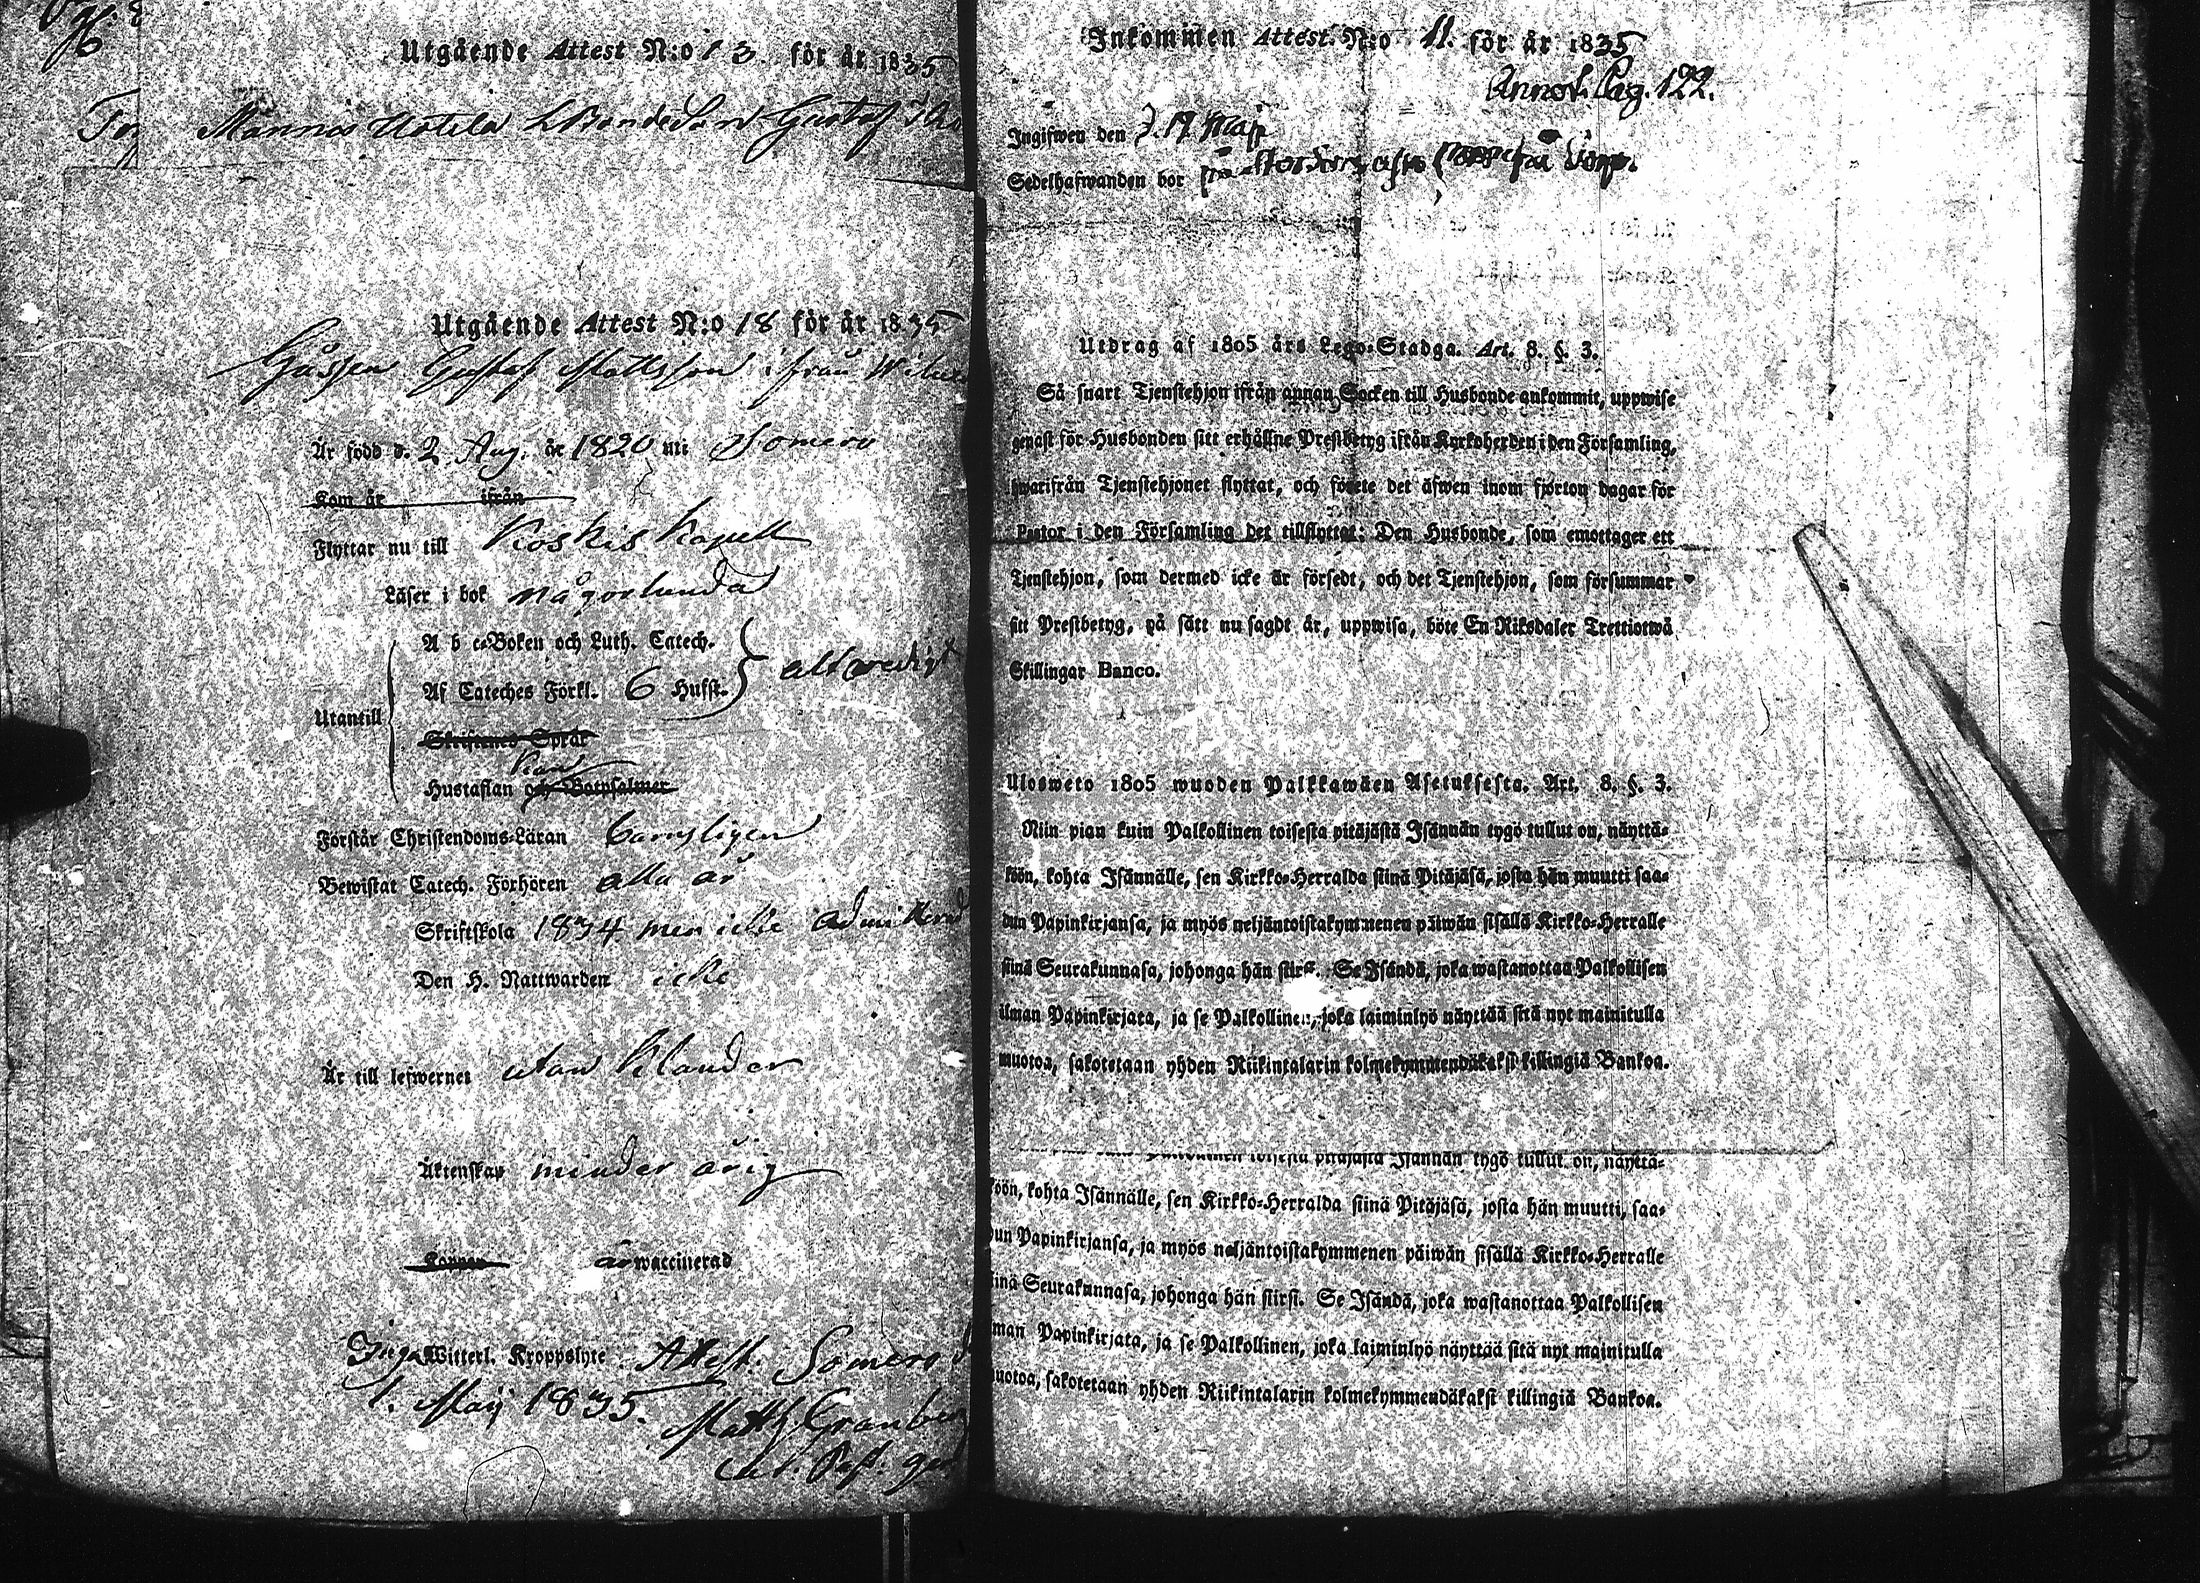 Utgående Attest N:o 13 för år 1835
Mannas Gustaf
Utgående Attest N:o 18 för år 1835
Gåssen Gustaf Mattsson ifrån
Är född d. 2 Aug. år 1820 uti Somero
Kom år ifrån
Flyttar nu till Koskis Kapell
Läser i bok någorlunda
Utantill
A b c-Boken och Luth. Catech.
Af Cateches Förkl. 6 Hufst.
Skriftenes Språk
Hustaflan kan och Botpsalmer
Förstår Christendoms-Läran barnsligen
Bewistat Catech. Förhören alla år
Skriftskola 1834 men icke admitterad
Den H. Nattwarden icke
Är till lefwernet utan klander
Äktenskap minder årig
Koppor är waccinerad
Inga Witterl. Kroppslyte Attest. Somero
1. Maij 1835.
Matth. Granberg
Inkommen Attest. N:o 11. för år 1835
Annot. Pag. 122.
Ingifwen den d. 19 Maji
Sedelhafwanden bor
Utdrag af 1805 års Lego-Stadga. Art. 8. §. 3.
Så snart Tjenstehjon ifrån annan Socken till Husbonde ankommit, uppwise
genast för Husbonden sitt erhållne Prestbetyg ifrån Kyrkoherden i den Församling,
hwarifrån Tjenstehjonet flyttat, och förete det äfwen inom fjorton dagar för
Pastor i den Församling det tillflyttat: Den Husbonde, som emottager ett
Tjenstehjon, som dermed icke är försedt, och det Tjenstehjon, som försummar
sitt Prestbetyg, på sätt nu sagdt är, uppwisa, böte En Riksdaler Trettiotwå
Skillingar Banco.
Ulosweto 1805 wuoden Palkkawäen Asetuksesta. Art. 8. §. 3.
Niin pian kuin Palkollinen toisesta pitäjästä Isännän tygö tullut on, näyttä-
köön, kohta Isännälle, sen Kirkko-Herralda siinä Pitäjäsä, josta hän muutti saa-
dun Papinkirjansa, ja myös neljäntoistakymmenen päiwän sisällä Kirkko-Herralle
siinä Seurakunnasa, johonga hän siirst. Se Isändä, joka wastanottaa Palkollisen
ilman Papinkirjata, ja se Palkollinen, joka laiminlyö näyttää sitä nyt mainitulla
muotoa, sakotetaan yhden Riikintalarin kolmekymmendäkaksi killingiä Bankoa.
toisesta pitäjästä Isännän tygö tullut on, näyttä-
köön, kohta Isännälle, sen Kirkko-Herralda siinä Pitäjäsä, josta hän muutti, saa-
dun Papinkirjansa, ja myös neljäntoistakymmenen päiwän sisällä Kirkko-Herralle
siinä Seurakunnasa, johonga hän siirsi. Se Isändä, joka wastanottaa Palkollisen
ilman Papinkirjata, ja se Palkollinen, joka laiminlyö näyttää sitä nyt mainitulla
muotoa, sakotetaan yhden Riikintalarin kolmekymmendäkaksi killingiä Bankoa.